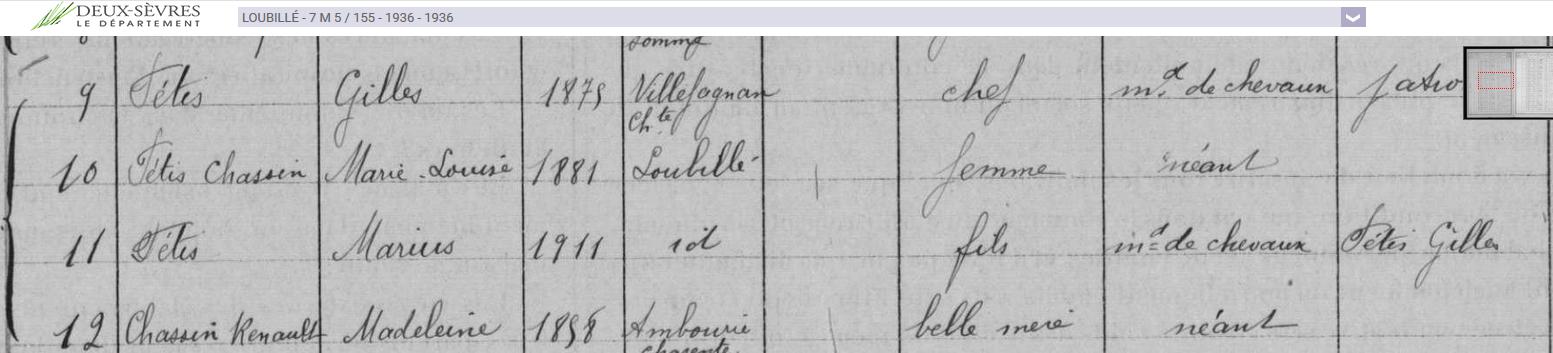 DEUX-SÈVRES
LE DÉPARTEMENT
LOUBILLÉ - 7 M 5 / 155 - 1936 - 1936
somme
9 Tétis Gilles 1875 Villefagnan chef md de chevaux patro
Chte
10 Tétis Chassin Marie-Louise 1881 Loubillé femme néant
11 Tétis Marius 1911 id fils md de chevaux Tétis Gilles
12 Chassin Renault Madeleine 1858 belle mère néant
charente